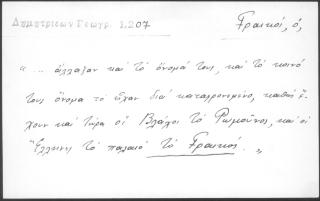 Δημητριέων Γεωγρ. 1.207
Γραικοί, ὁ,
"... ἄλλαξαν καὶ τὸ ὄνομά τους, καὶ τὸ κοινό
τους ὄνομα τὸ εἶχαν διὰ καταφρονεμένο, καθὼς ἔ-
χουν καὶ τώρα οἱ Βλάχοι τὸ Ρωμοῦνος, καὶ οἱ
Ἕλληνες τὸ παλαιὸ τὸ Γραικός. "